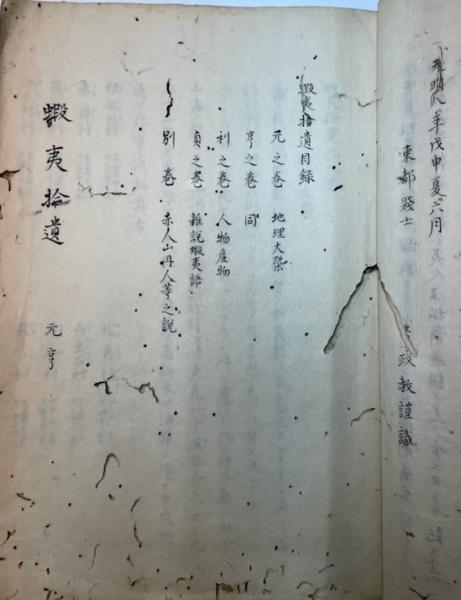 天明八年戊申夏六月
東都賤士 政教謹識
蝦夷拾遺目録
元之巻 地理大槩
亨之巻 同
利之巻 人物産物
貞之巻 雜説蝦夷語
別巻 赤人山丹人等之説
蝦夷拾遺 元亨